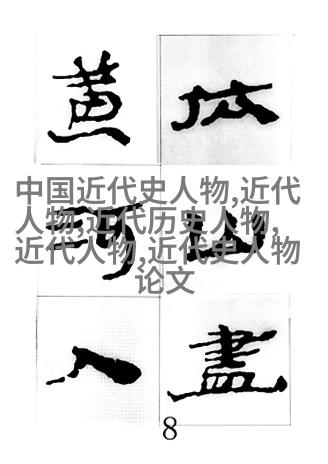 依山盡
黄河入
中国近代史人物,近代
人物,近代历史人物,
近代人物,近代史人物
论文
8